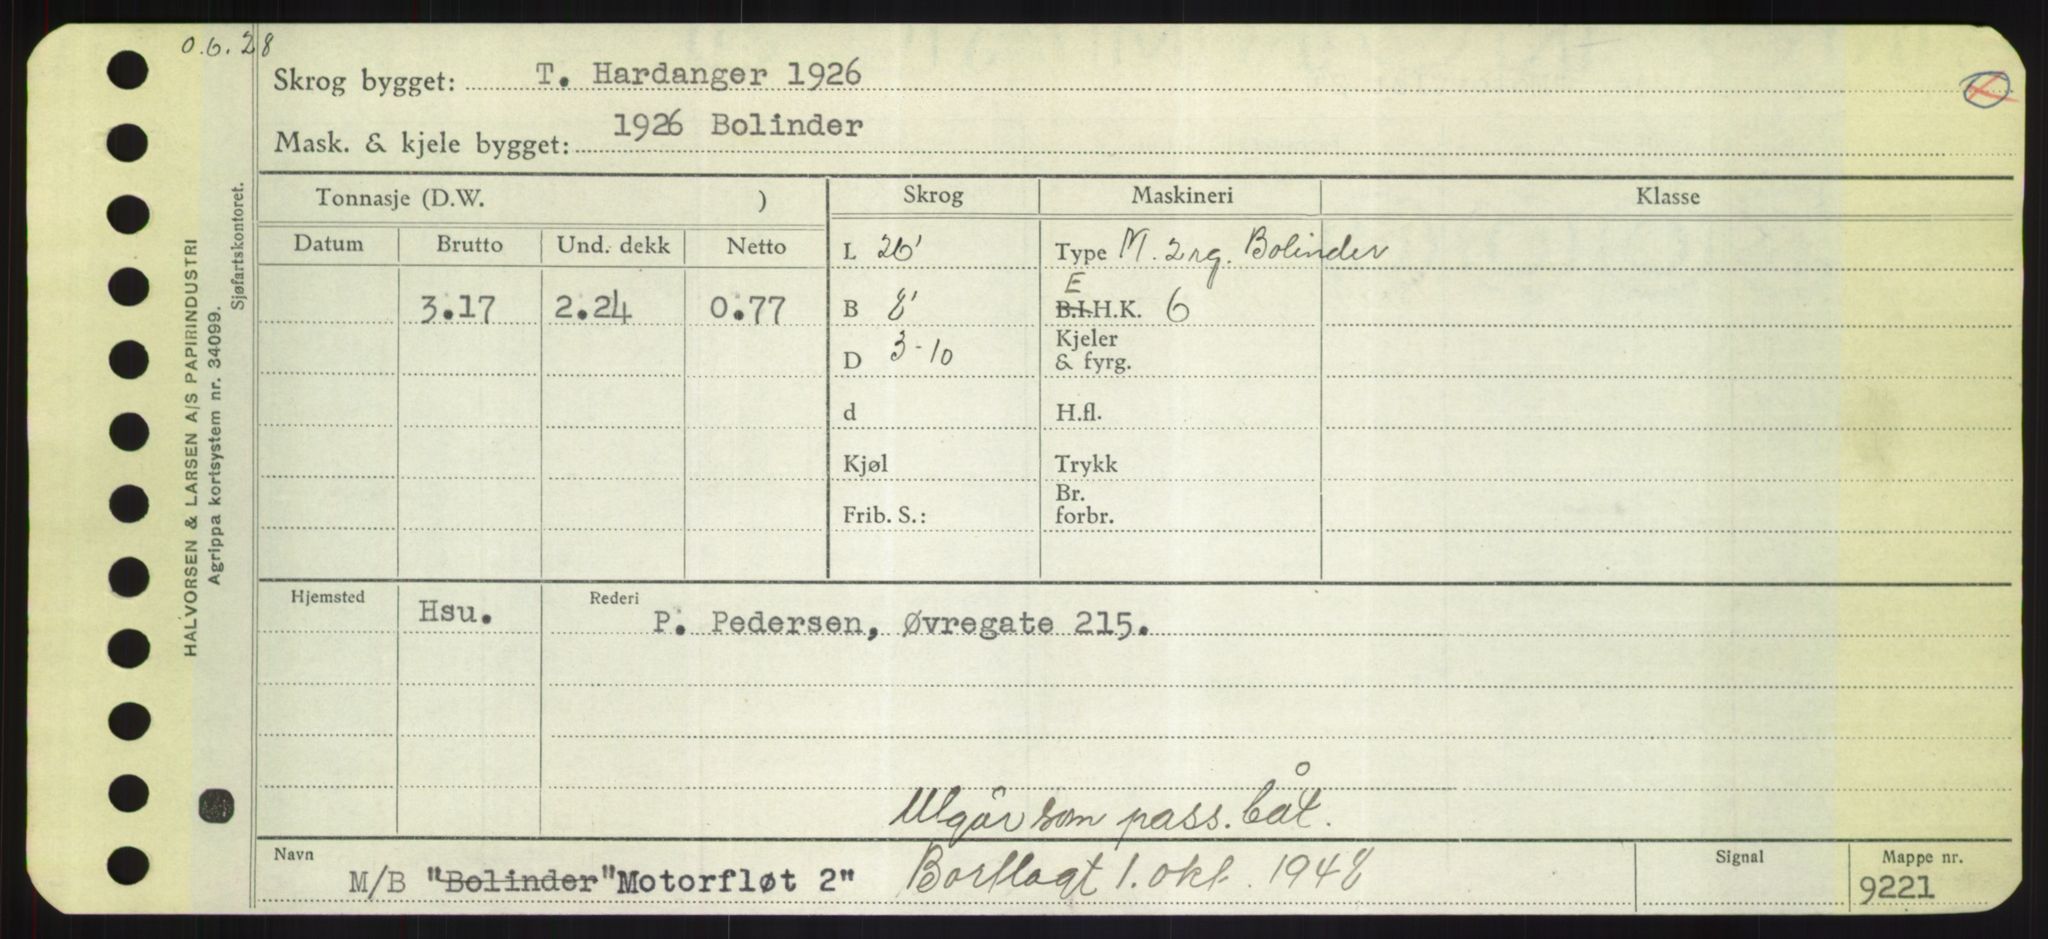 0.6.28
Skrog bygget: T. Hardanger 1926
Mask. & kjele bygget: 1926 Bolinder
HALVORSEN & LARSEN A/S PAPIRINDUSTRI
Agrippa kortsystem nr. 34099.
Sjøfartskontoret.
Tonnasje (D.W. ) Skrog Maskineri Klasse
Datum Brutto Und. dekk Netto L 26' Type M. 2 rg. Bolinder
E
3.17 2.24 0.77 B 8' B.I.H.K. 6
Kjeler
D 3-10 & fyrg.
d H.fl.
Kjøl Trykk
Br.
Frib. S.: forbr.
Hjemsted Hsu. Rederi P. Pedersen, Øvregate 215.
Utgår som pass. båt.
Navn Signal Mappe nr.
M/B "Bolinder" Motorfløt 2" Bortlagt 1. okt. 1948 9221